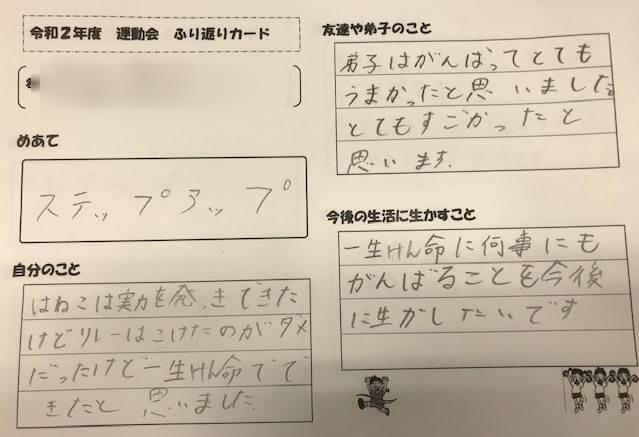 令和2年度 運動会 ふり返りカード
めあて
ステップアップ
自分のこと
はねこは実力を発っきできた
けどリレーはこけたのがダメ
だったけど一生けん命でで
きたと思いました
友達や弟子のこと
弟子はがんばってとても
うまかったと思いました
とてもすごかったと
思います.
今後の生活に生かすこと
一生けん命に何事にも
がんばることを今後
に生かしたいです